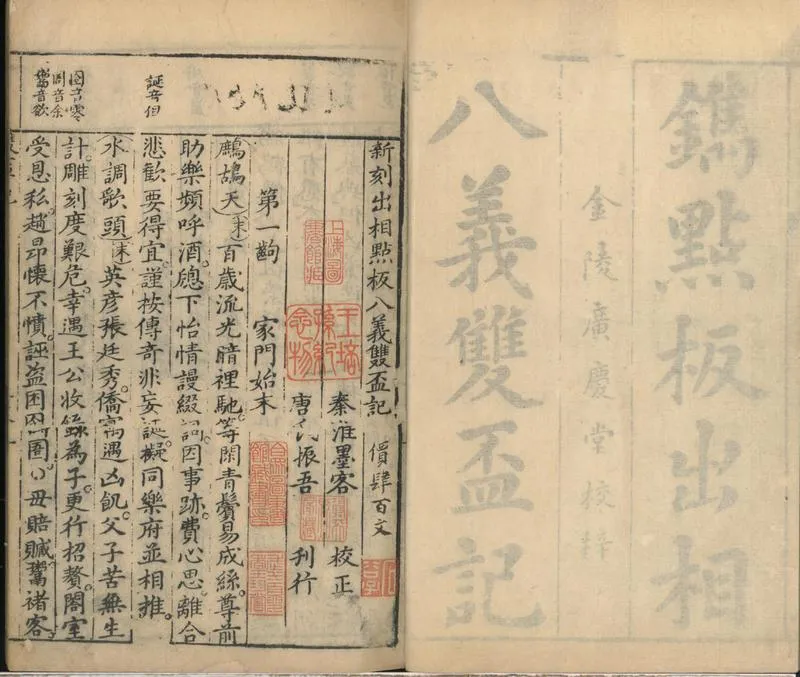 鐫點板出相
金陵廣慶堂校梓
八義雙盃記
新刻出相點板八義雙盃記 價肆百文
秦淮墨客 校正
唐氏振吾 刊行
第一齣 家門始末
鷓鴣天(末)百歲流光暗裡馳。等閑青鬢易成絲。尊前
助樂頻呼酒。牕下怡情謾綴詞。因事跡。費心思。離合
悲歡要得宜。謹按傳奇非妄誕。擬同樂府並相推。
水調歌頭(末)英彥張廷秀。僑寓遇凶飢。父子苦無生
計。雕刻度艱危。幸遇王公收錄為子。更行招贅。閤室
受恩私。趙昂懷不憤。誣盜困囹圄。父毋賠贓。鬻褚客。
誕音但
囹音零
圄音余
鬻音欲
上海圖書館藏
王培孫紀念物